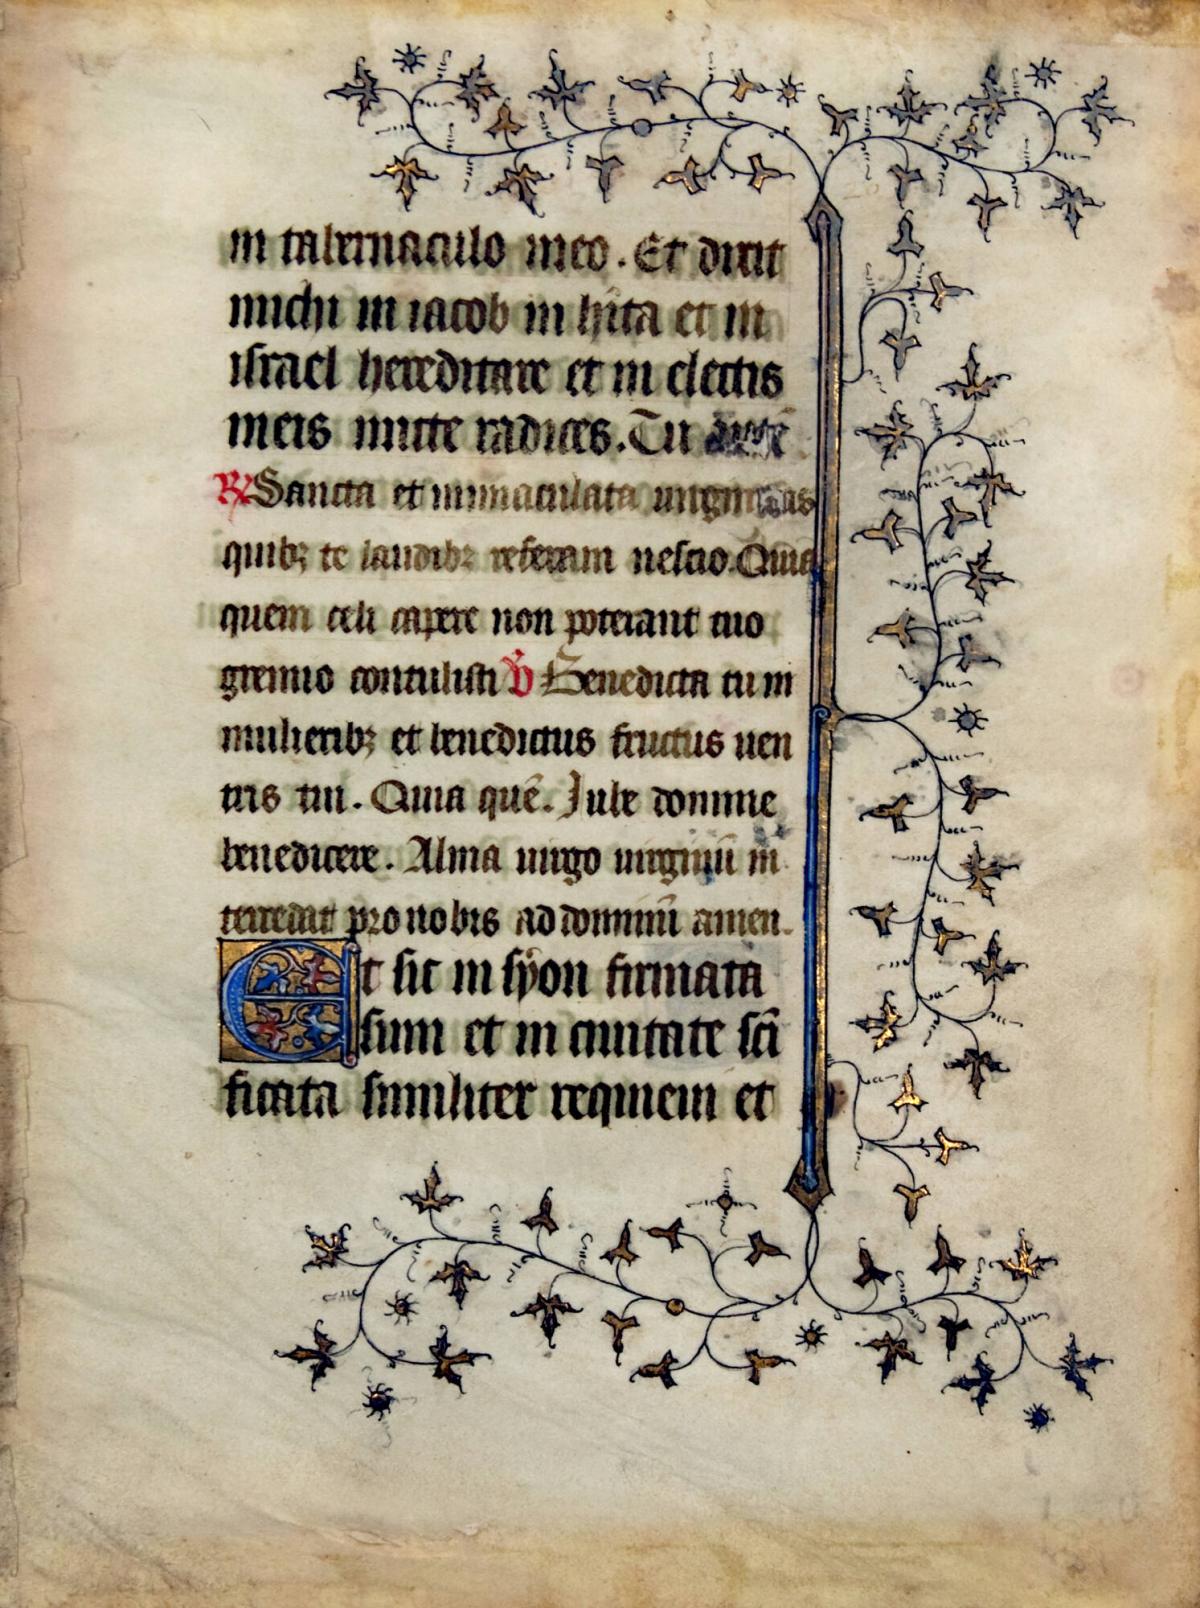 in tabernaculo meo. Et dixit
michi in iacob in hita et in
israel hereditare et in electis
meis mitte radices. Tu autē
℟ Sancta et immaculata virginitas
quibꝫ te laudibꝫ referam nescio. Quia
quem celi capere non poterant tuo
gremio contulisti ℣ Benedicta tu in
mulieribꝫ et benedictus fructus uen
tris tui. Quia quē. Iube domine
benedicere. Alma uirgo uirginū in
tercedat pro nobis ad dominū amen.
Et sic in syon firmata
sum et in ciuitate scī
ficata similiter requieui et